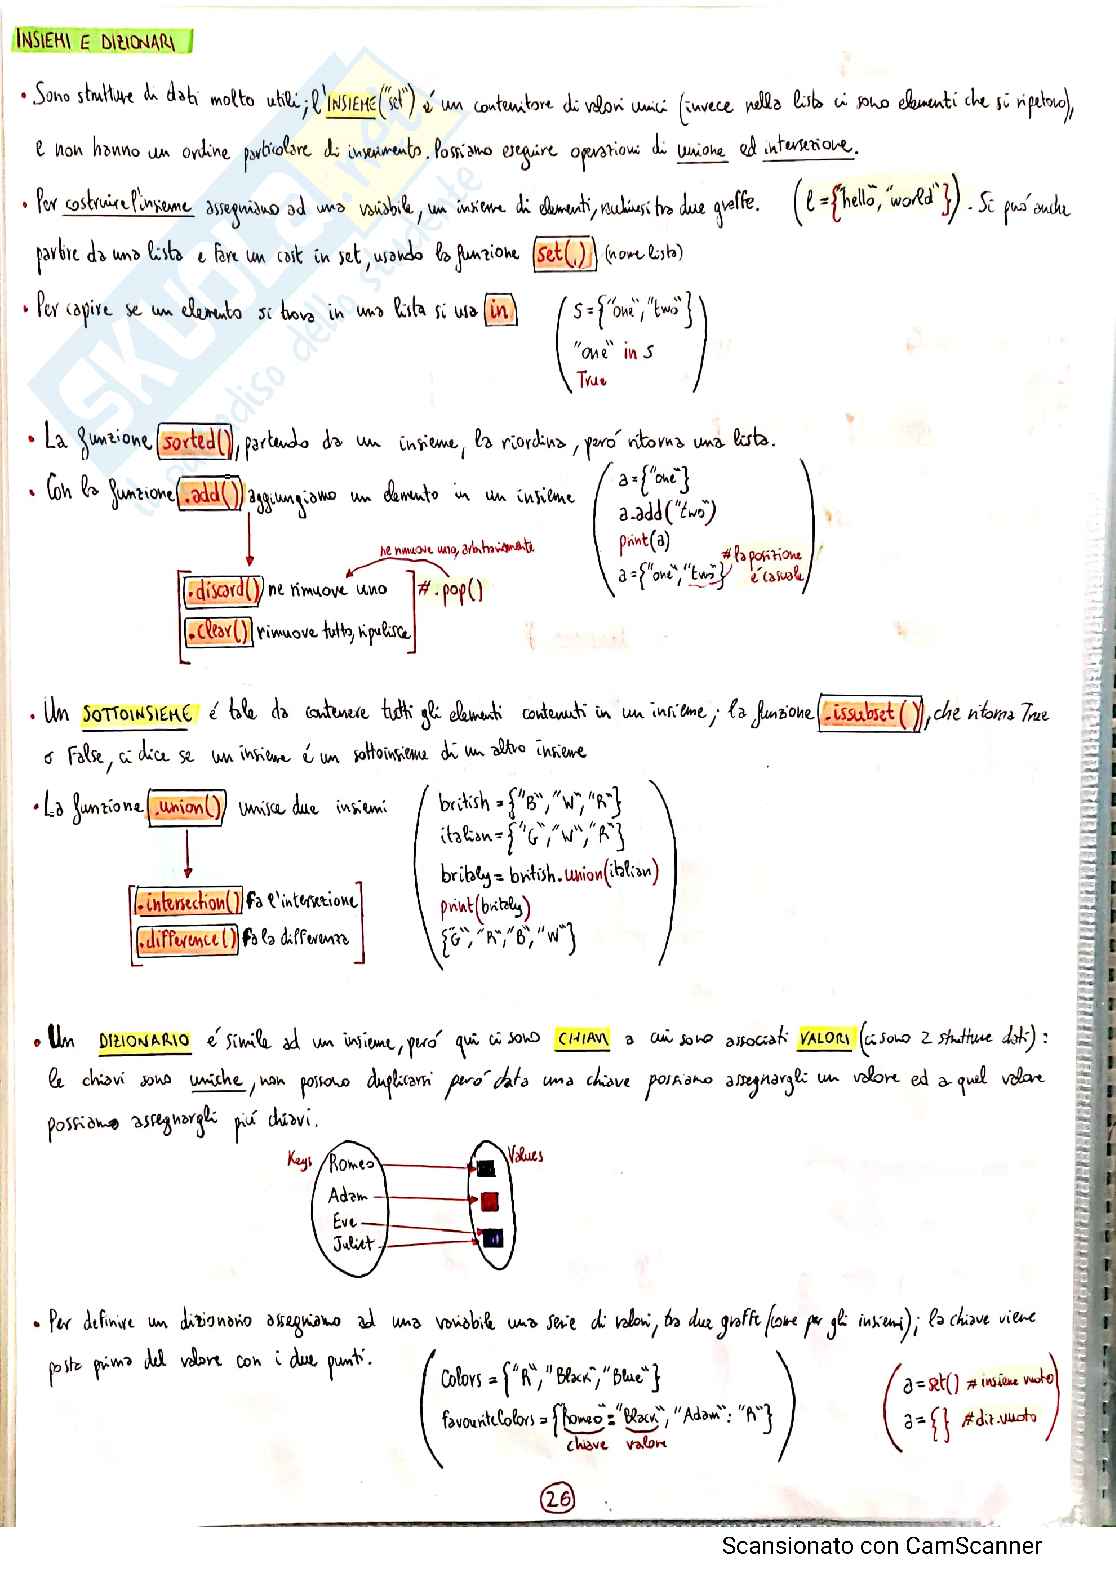 INSIEMI E DIZIONARI
• Sono strutture di dati molto utili; l'INSIEME ("set") é un contenitore di valori unici (invece nella lista ci sono elementi che si ripetono),
e non hanno un ordine particolare di inserimento. Possiamo eseguire operazioni di unione ed intersezione.
• Per costruire l'insieme assegniamo ad una variabile, un insieme di elementi, racchiusi tra due graffe. (l = {"hello", "world"}). Si può anche
partire da una lista e fare un cast in set, usando la funzione set(.) (nome lista)
• Per capire se un elemento si trova in una lista si usa in
S = {"one", "two"}
"one" in S
True
• La funzione sorted(), partendo da un insieme, la riordina, peró ritorna una lista.
• Con la funzione .add() aggiungiamo un elemento in un insieme
a = {"one"}
a.add("two")
print(a)
a = {"one", "two"} # la posizione é casuale
ne rimuove uno, arbitrariamente
.discard() ne rimuove uno # .pop()
.clear() rimuove tutto, ripulisce
• Un SOTTOINSIEME é tale da contenere tutti gli elementi contenuti in un insieme; la funzione .issubset(), che ritorna True
o False, ci dice se un insieme é un sottoinsieme di un altro insieme
• La funzione .union() unisce due insiemi
british = {"B", "W", "R"}
italian = {"G", "W", "R"}
britaly = british.union(italian)
print(britaly)
{"G", "R", "B", "W"}
.intersection() fa l'intersezione
.difference() fa la differenza
• Un DIZIONARIO é simile ad un insieme, peró qui ci sono CHIAVI a cui sono associati VALORI (ci sono 2 strutture dati):
le chiavi sono uniche, non possono duplicarsi peró data una chiave possiamo assegnargli un valore ed a quel valore
possiamo assegnargli piú chiavi.
Keys Values
Romeo
Adam
Eve
Juliet
• Per definire un dizionario assegniamo ad una variabile una serie di valori, tra due graffe (come per gli insiemi); la chiave viene
posta prima del valore con i due punti.
Colors = {"R", "Black", "Blue"}
favouriteColors = {"Romeo": "Black", "Adam": "R"}
chiave valore
a = set() # insieme vuoto
a = {} # diz. vuoto
26
Scansionato con CamScanner
SKUOLA.net
il paradiso dello studente